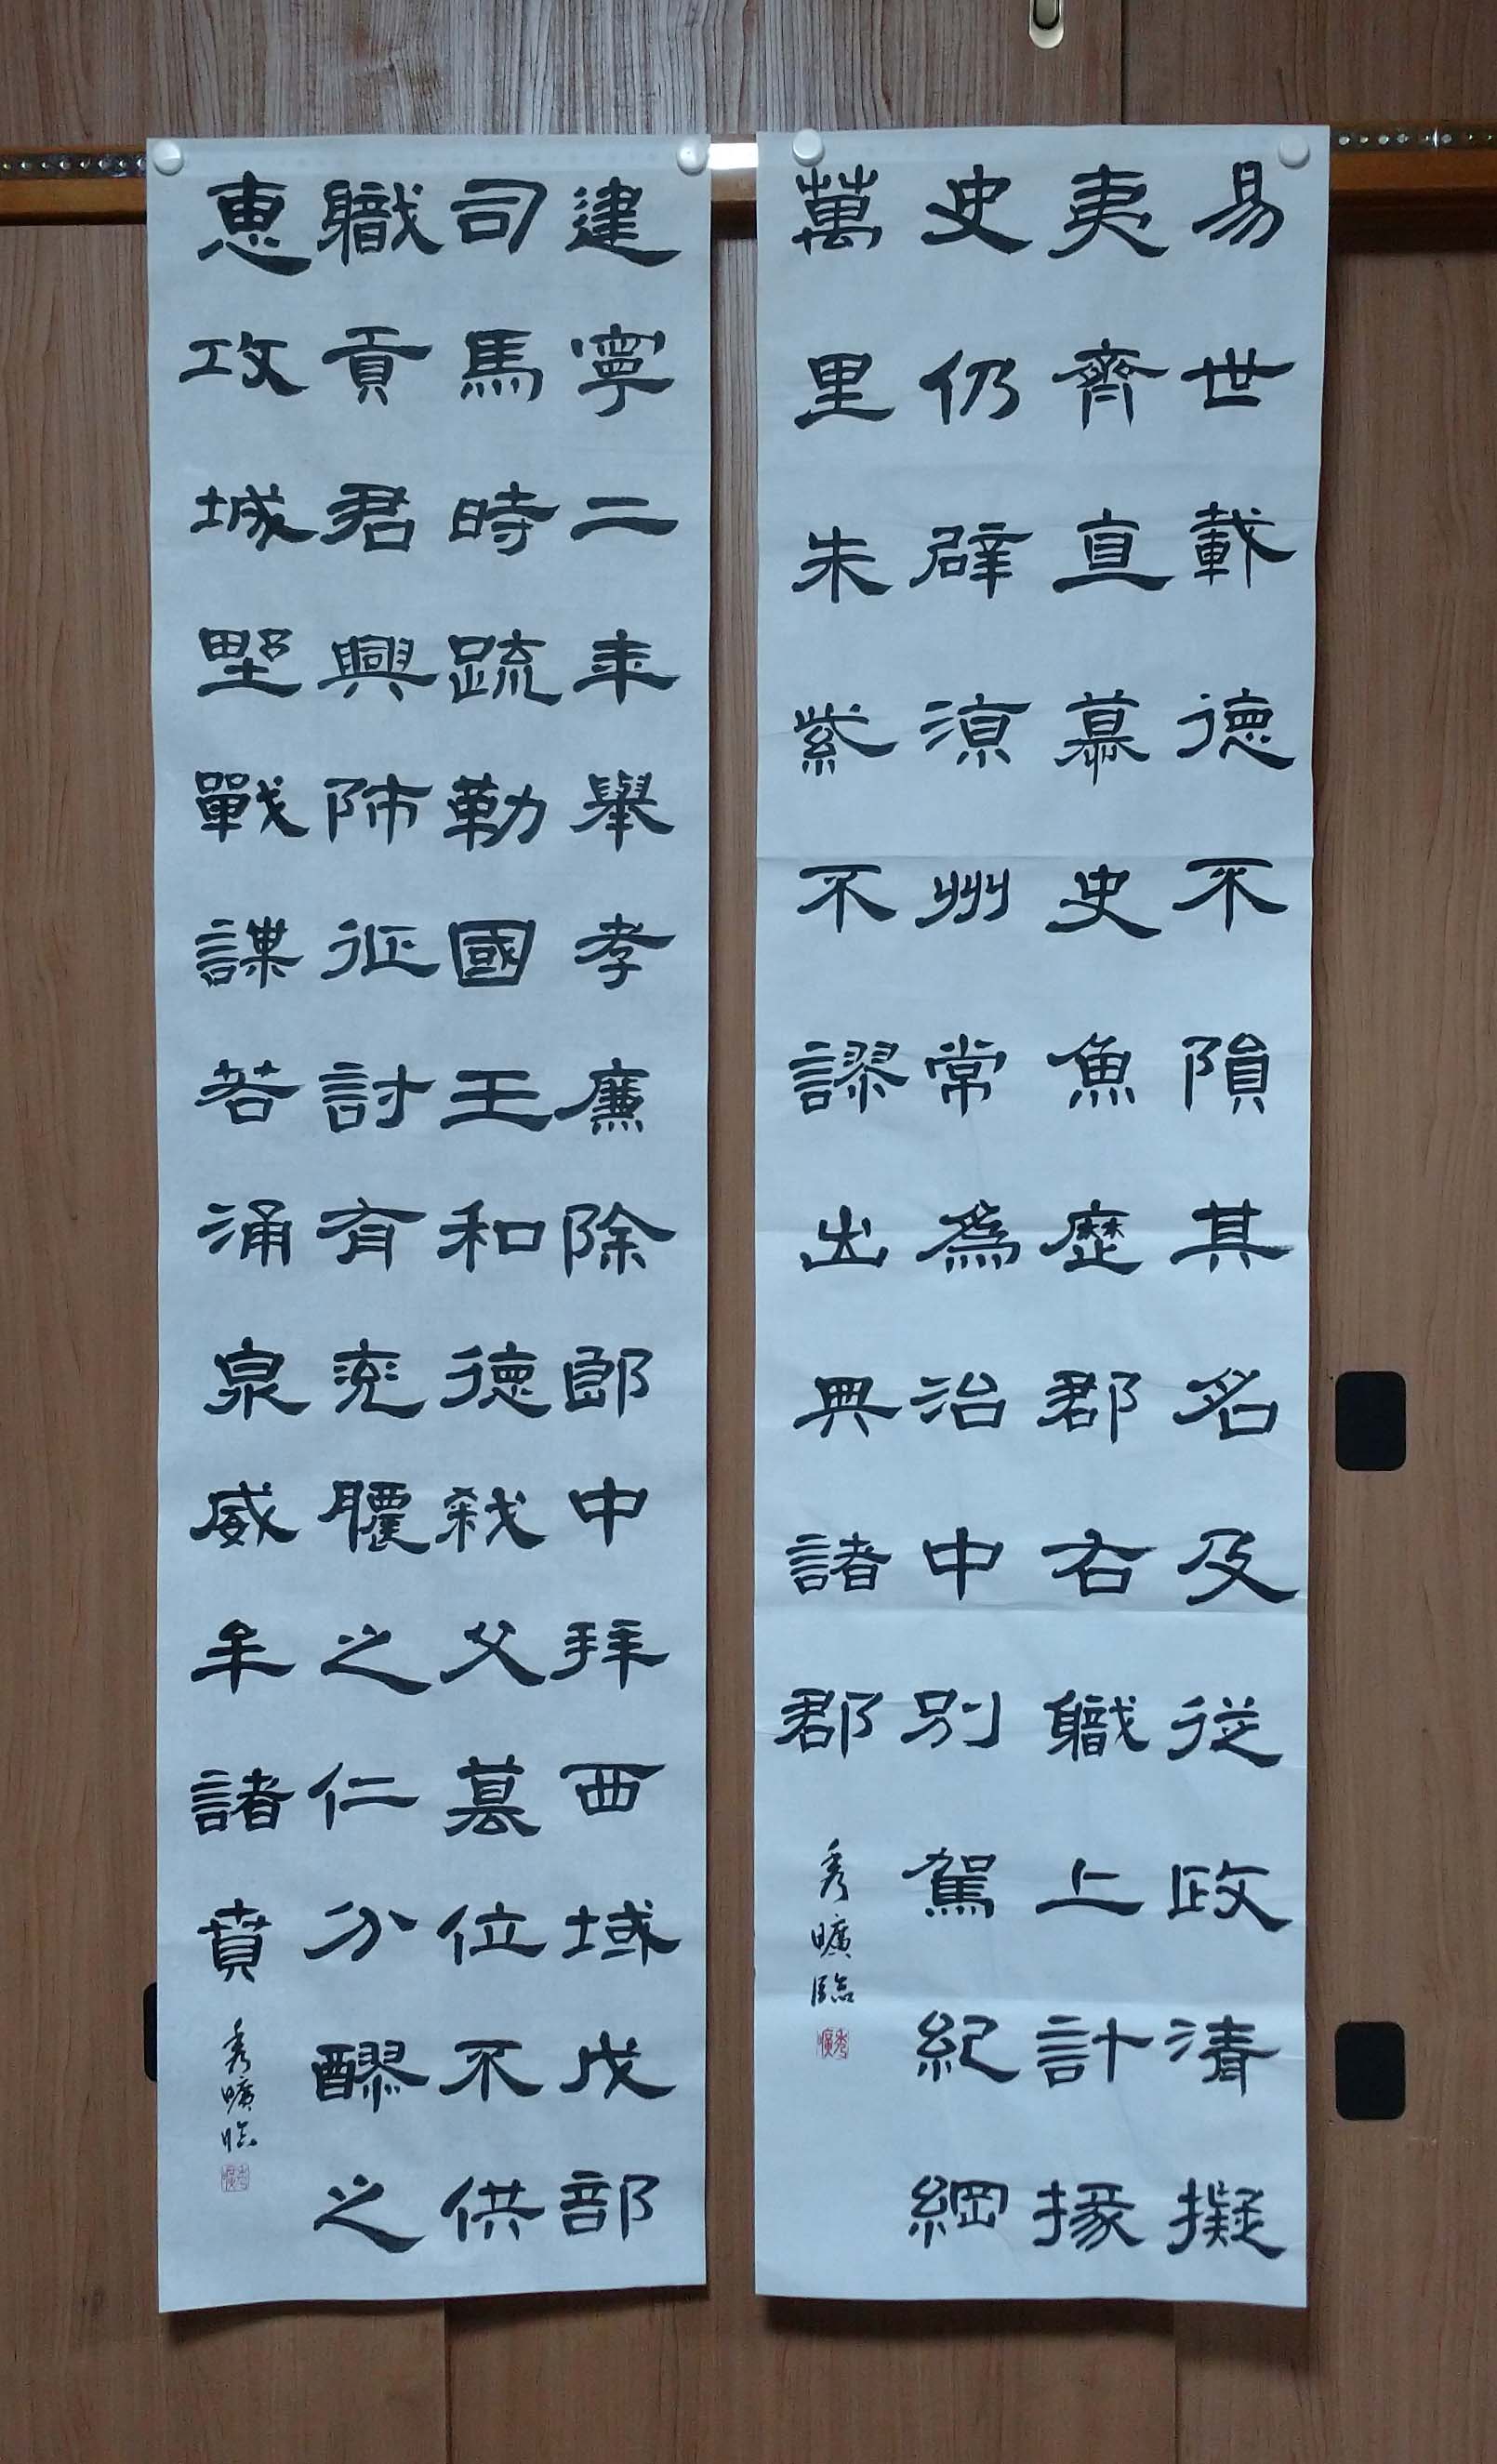 易世載德不隕其名及従政清擬
夷齊直慕史魚歷郡右職上計掾
史仍辟涼州常為治中別駕紀綱
萬里朱紫不謬出典諸郡
秀曠臨
建寧二年舉孝廉除郎中拜西域戊部
司馬時疏勒國王和德弒父篡位不供
職貢君興師征討有兖膿之仁分醪之
恵攻城野戰謀若涌泉威牟諸賁
秀曠臨